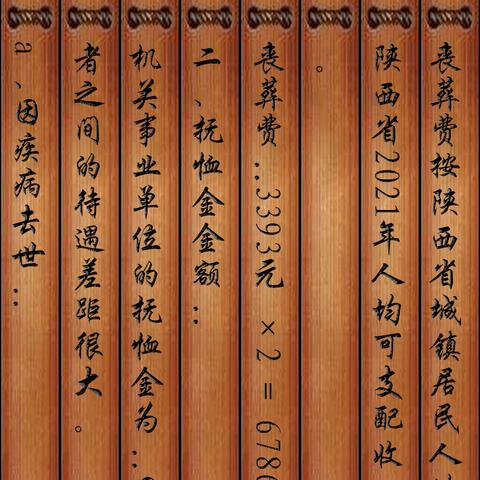 丧葬费按陕西省城镇居民人
陕西省2021年人均可支配收
。
丧葬费：3393元 × 2 = 6786
二、抚恤金金额：
机关事业单位的抚恤金为：
者之间的待遇差距很大。
a、因疾病去世：